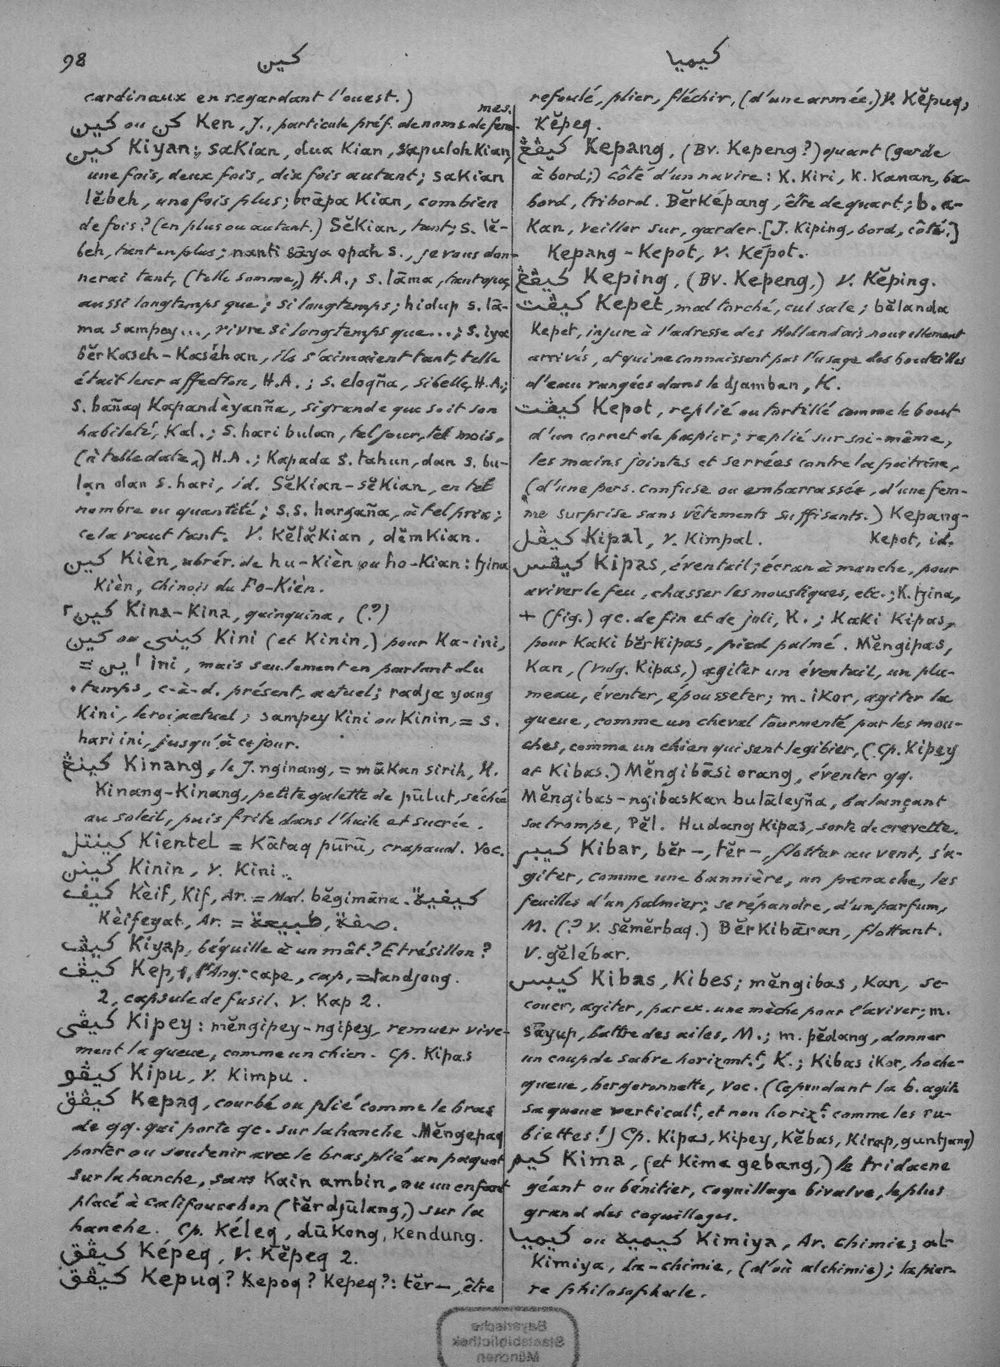 98
كين
كيميا
cardinaux en regardant l'ouest.)
كين ou كن Ken, J., particule préf. de noms de femmes.
كين Kiyan; saKian, dua Kian, sapuloh Kian,
une fois, deux fois, dix fois autant; saKian
lĕbeh, une fois plus; brāpa Kian, combien
de fois? (en plus ou autant.) SĕKian, tant; s. lĕ-
beh, tant en plus; nanti sāya opah s., je vous don-
nerai tant, (telle somme,) H.A.; s. lāma, tant que,
aussi longtemps que; si longtemps; hidup s. lā-
ma sampey..., vivre si longtemps que...; s. iya
bĕrKaseh-Kaséhan, ils s'aimaient tant, telle
était leur affection, H.A.; s. eloqña, si belle, H.A.;
s. bañaq Kapandèyanña, si grande que soit son
habileté, Kal.; s. hari bulan, tel jour, tel mois,
(à telle date,) H.A.; Kapada s. tahun, dan s. bu-
lan dan s. hari, id. SĕKian-sĕKian, en tel
nombre ou quantité; s.s. hargaña, à tel prix;
cela vaut tant. V. KĕlăKian, dĕmKian.
كين Kièn, abrév. de hu-Kièn ou ho-Kian: tjina
Kièn, chinois du Fo-Kièn.
كين Kina-Kina, quinquina, (?)
كين ou كيني Kini (et Kinin,) pour Ka-ini,
= اين ini, mais seulement en parlant du
temps, c-à-d. présent, actuel; radja yang
Kini, le roi actuel; sampey Kini ou Kinin, = s.
hari ini, jusqu'à ce jour.
كينڠ Kinang, le J. nginang, = māKan sirih, K.
Kinang-Kinang, petite galette de pūlut, séchée
au soleil, puis frite dans l'huile et sucrée.
كينتل Kientel = Kātaq pūrū, crapaud. Voc.
كينن Kinin, V. Kini.
كيف Kèif, Kif, Ar. = Mal. bĕgimāna. كيفية
Kèifeyat, Ar. = صفة, طبيعة.
كيڤ Kiyap, béquille à un mât? Etrésillon?
كيڤ Kep, 1, l'Ang. cape, cap, = tandjong.
2, capsule de fusil. V. Kap 2.
كيڤي Kipey: mĕngipey-ngipey, remuer vive-
ment la queue, comme un chien. Cp. Kipas
كيڤو Kipu, V. Kimpu.
كيڤق Kepaq, courbé ou plié comme le bras
de qq. qui porte qc. sur la hanche. Mĕngepaq
porter ou soutenir avec le bras plié un paquet
sur la hanche, sans Kain ambin, ou un enfant
placé à califourchon (tĕrdjūlang,) sur la
hanche. Cp. Kéleq, dūKong, Kendung.
كيڤق Képeq, V. Kĕpeq 2.
كيڤق Kepuq? Kepoq? Kepeq?: tĕr-, être
refoulé, plier, fléchir, (d'une armée.) V. Kĕpuq,
Kĕpeq.
كيڤڠ Kepang, (Bv. Kepeng?) quart (garde
à bord;) côté d'un navire: K. Kiri, K. Kanan, ba-
bord, tribord. BĕrKépang, être de quart; b. a-
Kan, veiller sur, garder. [J. Kiping, bord, côté.]
Kepang-Kepot, V. Képot.
كيڤڠ Keping, (Bv. Kepeng,) V. Kĕping.
كيڤت Kepet, mal torché, cul sale; bĕlanda
Kepet, injure à l'adresse des Hollandais nouvellement
arrivés, et qui ne connaissent pas l'usage des bouteilles
d'eau rangées dans le djamban, K.
كيڤت Kepot, replié ou tortillé comme le bout
d'un cornet de papier; replié sur soi-même,
les mains jointes et serrées contre la poitrine,
(d'une pers. confuse ou embarrassée, d'une fem-
me surprise sans vêtements suffisants.) Kepang-
Kepot, id.
كيڤل Kipal, V. Kimpal.
كيڤس Kipas, éventail; écran à manche, pour
aviver le feu, chasser les moustiques, etc.; K. tjina,
+ (fig.) qc. de fin et de joli, K.; KaKi Kipas,
pour KaKi bĕrKipas, pied palmé. Mĕngipas,
Kan, (vulg. Kipas,) agiter un éventail, un plu-
meau, éventer, épousseter; m. iKor, agiter la
queue, comme un cheval tourmenté par les mou-
ches, comme un chien qui sent le gibier, (Cp. Kipey
et Kibas.) Mĕngibāsi orang, éventer qq.
Mĕngibas-ngibasKan bulāleyña, balançant
sa trompe, Pĕl. Hudang Kipas, sorte de crevette.
كيبر Kibar, bĕr-, tĕr-, flotter au vent, s'a-
giter, comme une bannière, un panache, les
feuilles d'un palmier; se répandre, d'un parfum,
M. (? V. sĕmĕrbaq.) BĕrKibāran, flottant.
V. gĕlébar.
كيبس Kibas, Kibes; mĕngibas, Kan, se-
couer, agiter, par ex. une mèche pour l'aviver; m.
sāyup, battre des ailes, M.; m. pĕdang, donner
un coup de sabre horizont.t, K.; Kibas iKor, hoche-
queue, bergeronnette, Voc. (Cependant la b. agite
sa queue vertical.t, et non horiz.t comme les ru-
biettes!) Cp. Kipas, Kipey, Kĕbas, Kirap, guntjang)
كيم Kima, (et Kima gebang,) le tridacne
géant ou bénitier, coquillage bivalve, le plus
grand des coquillages.
كيميا ou كيمية Kimiya, Ar. chimie; al-
Kimiya, la-chimie, (d'où alchimie); la pier-
re philosophale.
Bayerische
Staatsbibliothek
München